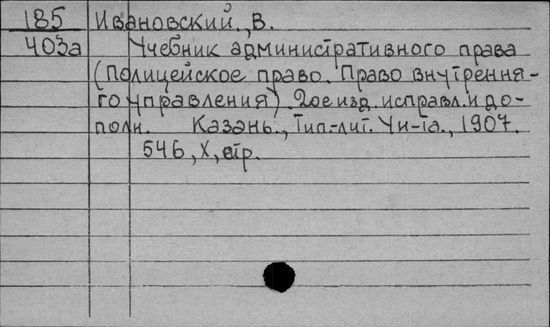 185 Ивановский., В.
403а Учебник административного права
(Полицейское право. Право внутрення-
го управления). 2ое изд. исправл. и до-
полн. Казань., Тип.-лит. Ун-та., 1907.
546, X, стр.